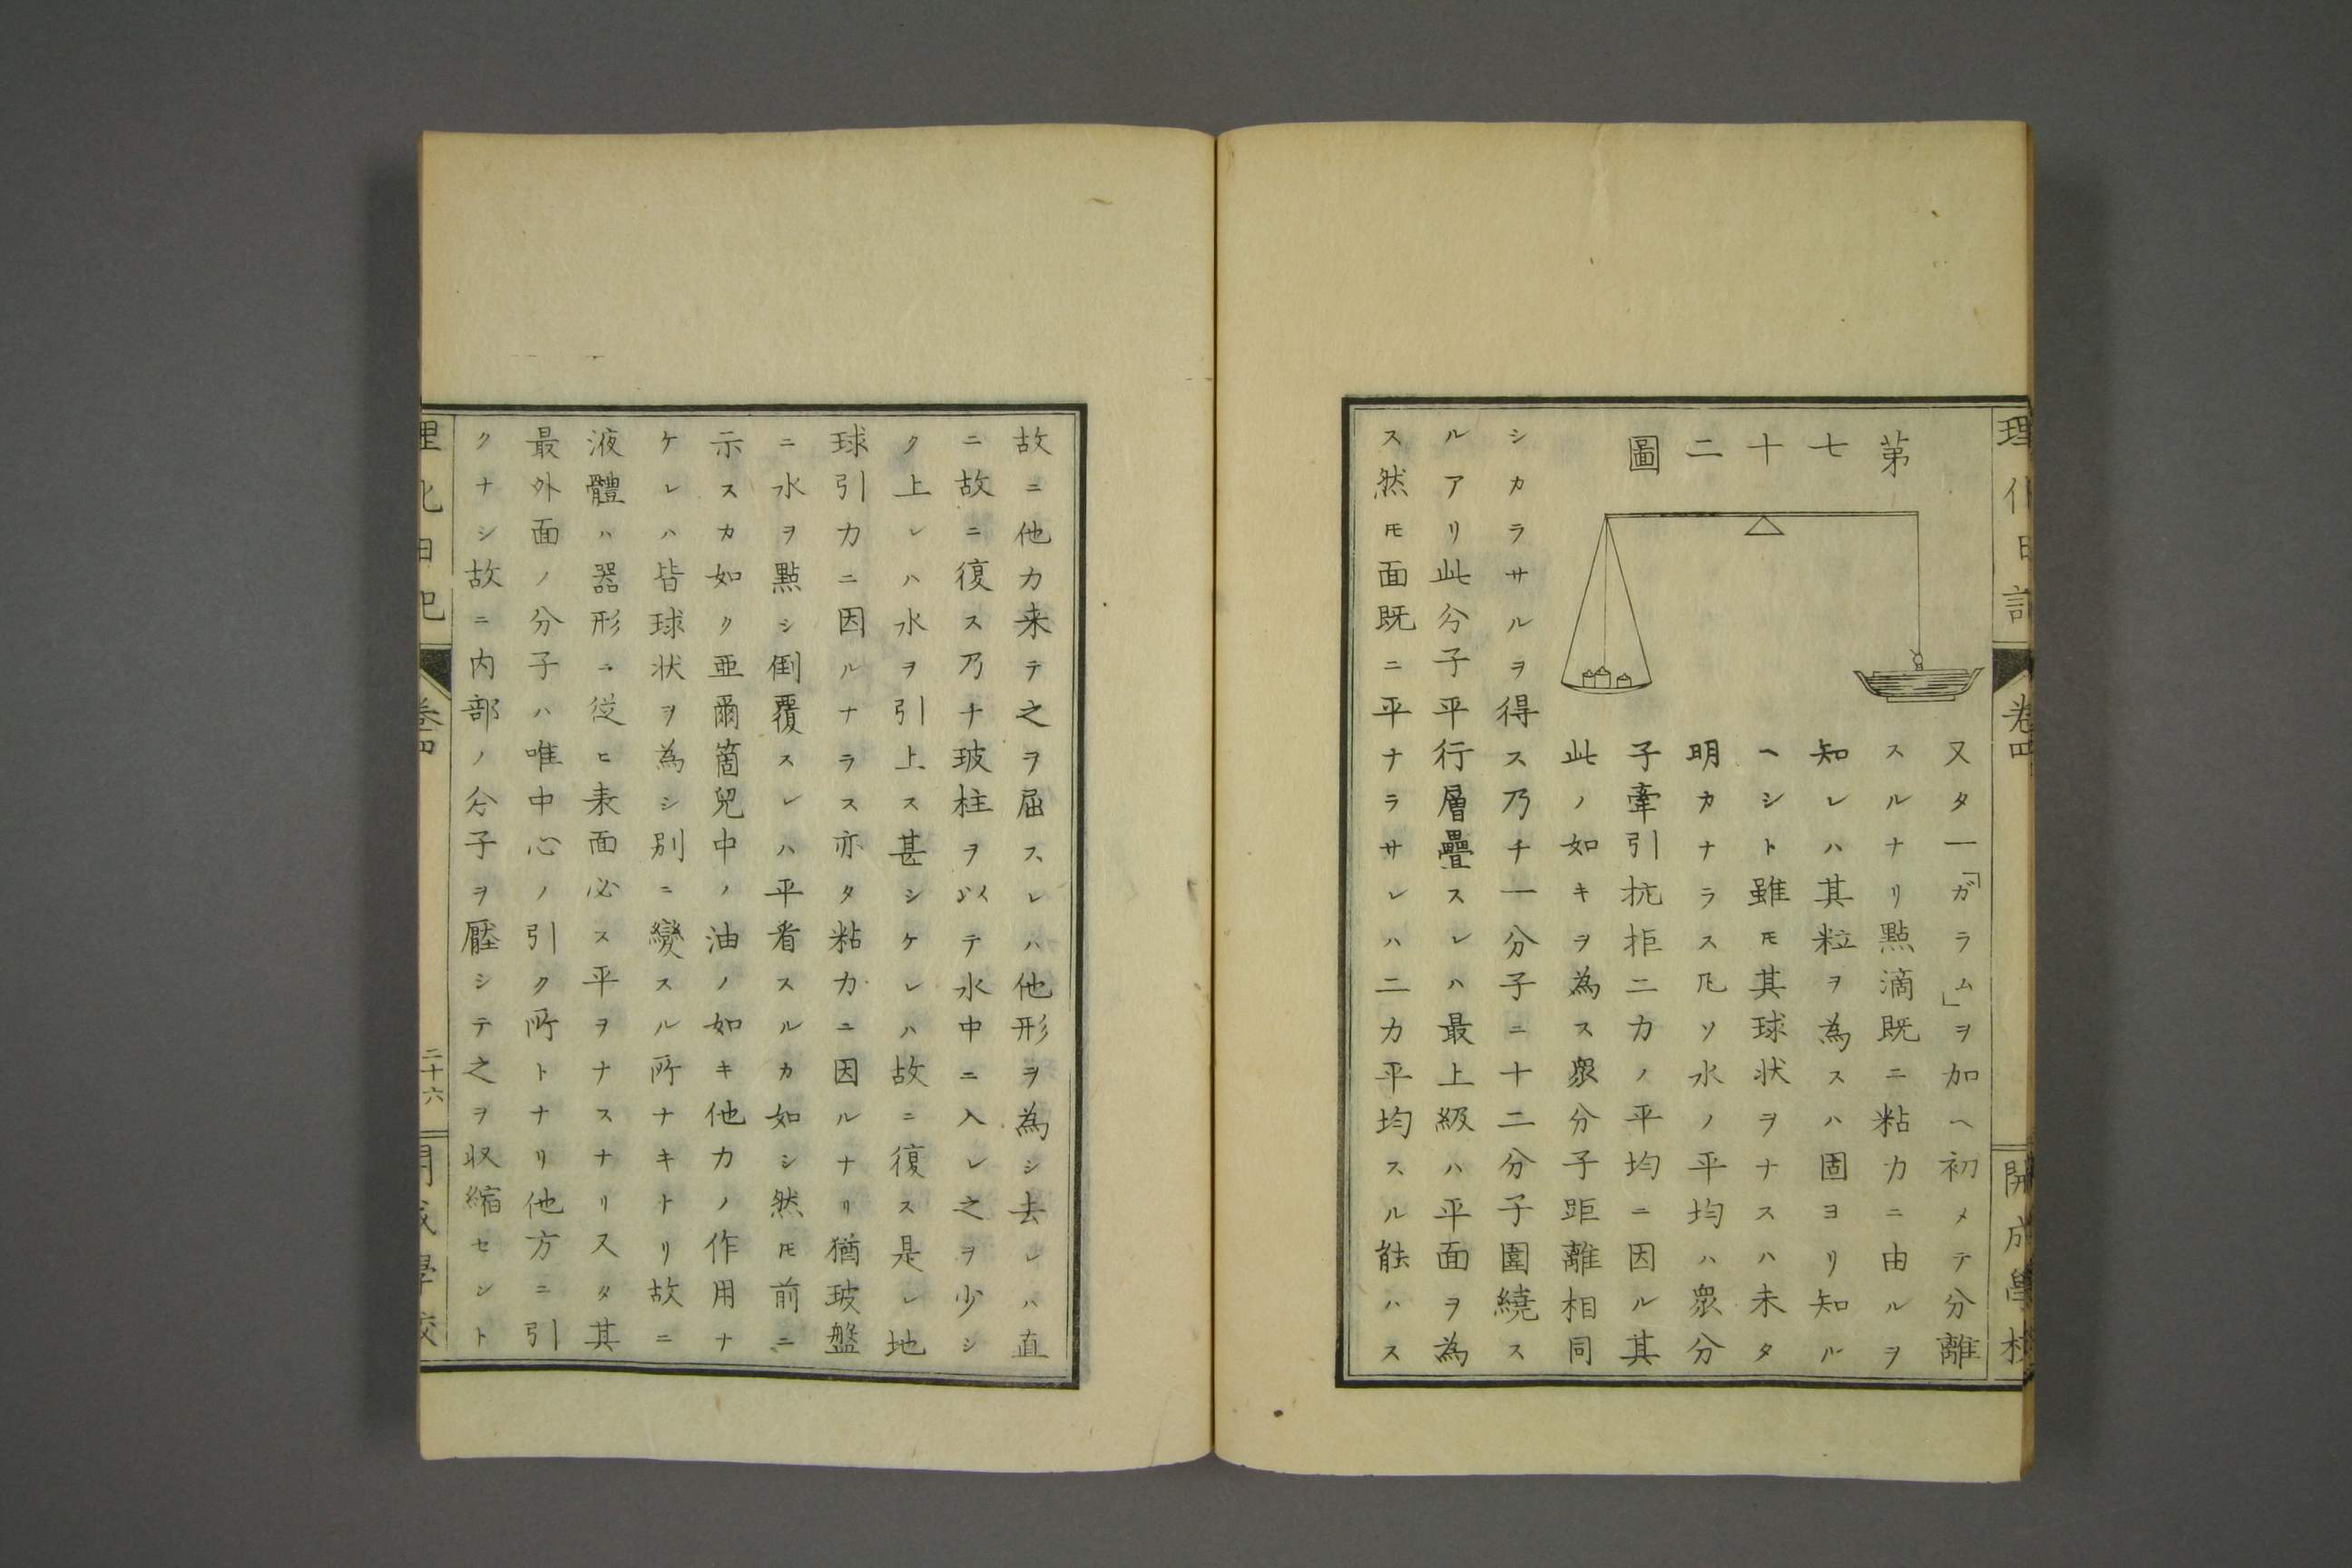 理化日記
卷四
開成學校
第七十二圖
又タ一「ガラム」ヲ加ヘ初メテ分離
スルナリ點滴既ニ粘力ニ由ルヲ
知レハ其粒ヲ為スハ固ヨリ知ル
ヘシト雖モ其球状ヲナスハ未タ
明カナラス凡ソ水ノ平均ハ衆分
子牽引抗拒二力ノ平均ニ因ル其
此ノ如キヲ為ス衆分子距離相同
シカラサルヲ得ス乃チ一分子ニ十二分子圍繞ス
ルアリ此分子平行層疊スレハ最上級ハ平面ヲ為
ス然モ面既ニ平ナラサレハ二力平均スル能ハス
故ニ他力来テ之ヲ屈スレハ他形ヲ為シ去レハ直
ニ故ニ復ス乃チ玻柱ヲ以テ水中ニ入レ之ヲ少シ
ク上レハ水ヲ引上ス甚シケレハ故ニ復ス是レ地
球引力ニ因ルナラス亦タ粘力ニ因ルナリ猶玻盤
ニ水ヲ點シ倒覆スレハ平着スルカ如シ然モ前ニ
示スカ如ク亜爾箇兒中ノ油ノ如キ他力ノ作用ナ
ケレハ皆球状ヲ為シ別ニ變スル所ナキトリ故ニ
液體ハ器形ニ従ヒ表面必ス平ヲナスナリ又タ其
最外面ノ分子ハ唯中心ノ引ク所トナリ他方ニ引
クナシ故ニ内部ノ分子ヲ壓シテ之ヲ収縮セント
理化日記
卷四
二十六
開成學校